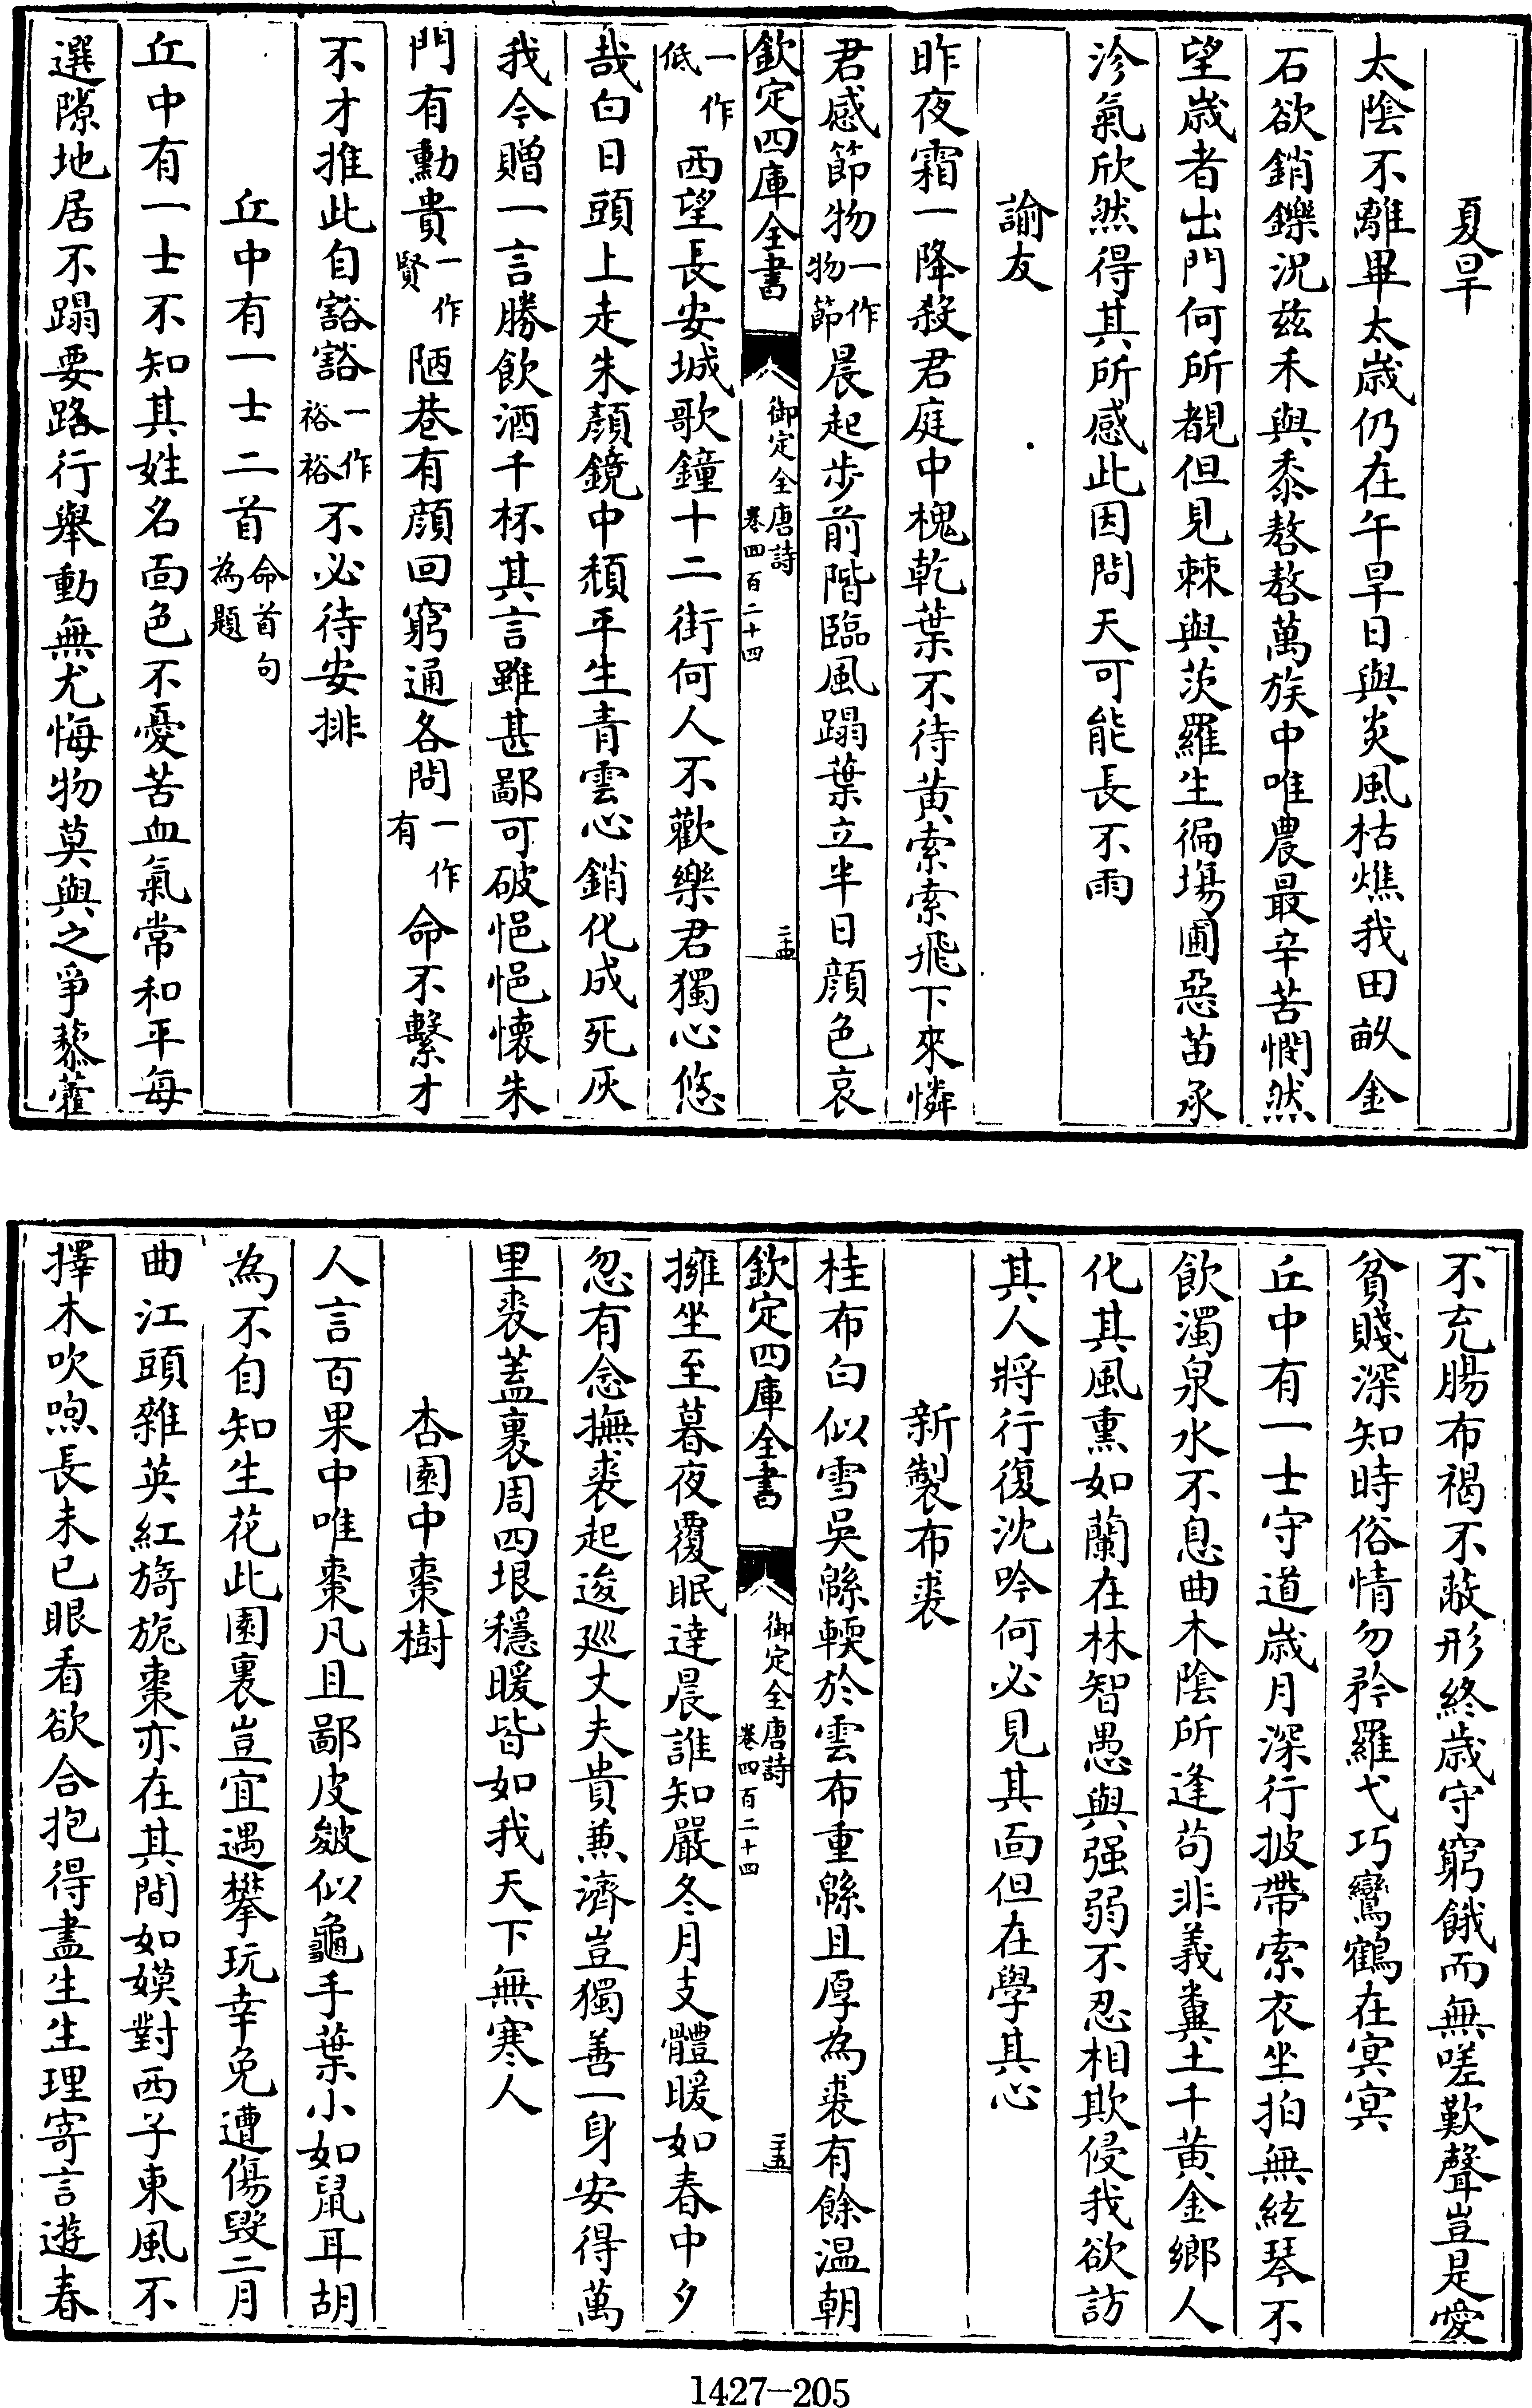 夏旱
太陰不離畢太歲仍在午旱日與炎風枯燋我田畝金
石欲銷鑠況兹禾與黍嗸嗸萬族中唯農最辛苦憫然
望歲者出門何所覩但見棘與茨羅生徧場圃惡苗承
沴氣欣然得其所感此因問天可能長不雨
諭友
昨夜霜一降殺君庭中槐乾葉不待黄索索飛下來憐
君感節物一作物節晨起步前階臨風蹋葉立半日顔色哀
欽定四庫全書 御定全唐詩卷四百二十四 二十四
一作低西望長安城歌鐘十二街何人不歡樂君獨心悠
哉白日頭上走朱顔鏡中頽平生青雲心銷化成死灰
我今贈一言勝飲酒千杯其言雖甚鄙可破悒悒懐朱
門有勳貴一作賢陋巷有顔回窮通各問一作有命不繫才
不才推此自豁豁一作裕裕不必待安排
丘中有一士二首命首句為題
丘中有一士不知其姓名面色不憂苦血氣常和平每
選隙地居不蹋要路行舉動無尤悔物莫與之爭藜藿
不充腸布褐不蔽形終歲守窮餓而無嗟歎聲豈是愛
貧賤深知時俗情勿矜羅弋巧鸞鶴在冥冥
丘中有一士守道歲月深行披帶索衣坐拍無絃琴不
飲濁泉水不息曲木陰所逢苟非義糞土千黄金鄉人
化其風熏如蘭在林智愚與强弱不忍相欺侵我欲訪
其人將行復沈吟何必見其面但在學其心
新製布裘
桂布白似雪吳緜輭於雲布重緜且厚為裘有餘温朝
欽定四庫全書 御定全唐詩卷四百二十四 二十五
擁坐至暮夜覆眠達晨誰知嚴冬月支體暖如春中夕
忽有念撫裘起逡巡丈夫貴兼濟豈獨善一身安得萬
里裘蓋裹周四垠穩暖皆如我天下無寒人
杏園中棗樹
人言百果中唯棗凡且鄙皮皴似龜手葉小如鼠耳胡
為不自知生花此園裏豈宜遇攀玩幸免遭傷毁二月
曲江頭雜英紅旖旎棗亦在其間如嫫對西子東風不
擇木吹喣長未已眼看欲合抱得盡生生理寄言遊春
1427-205